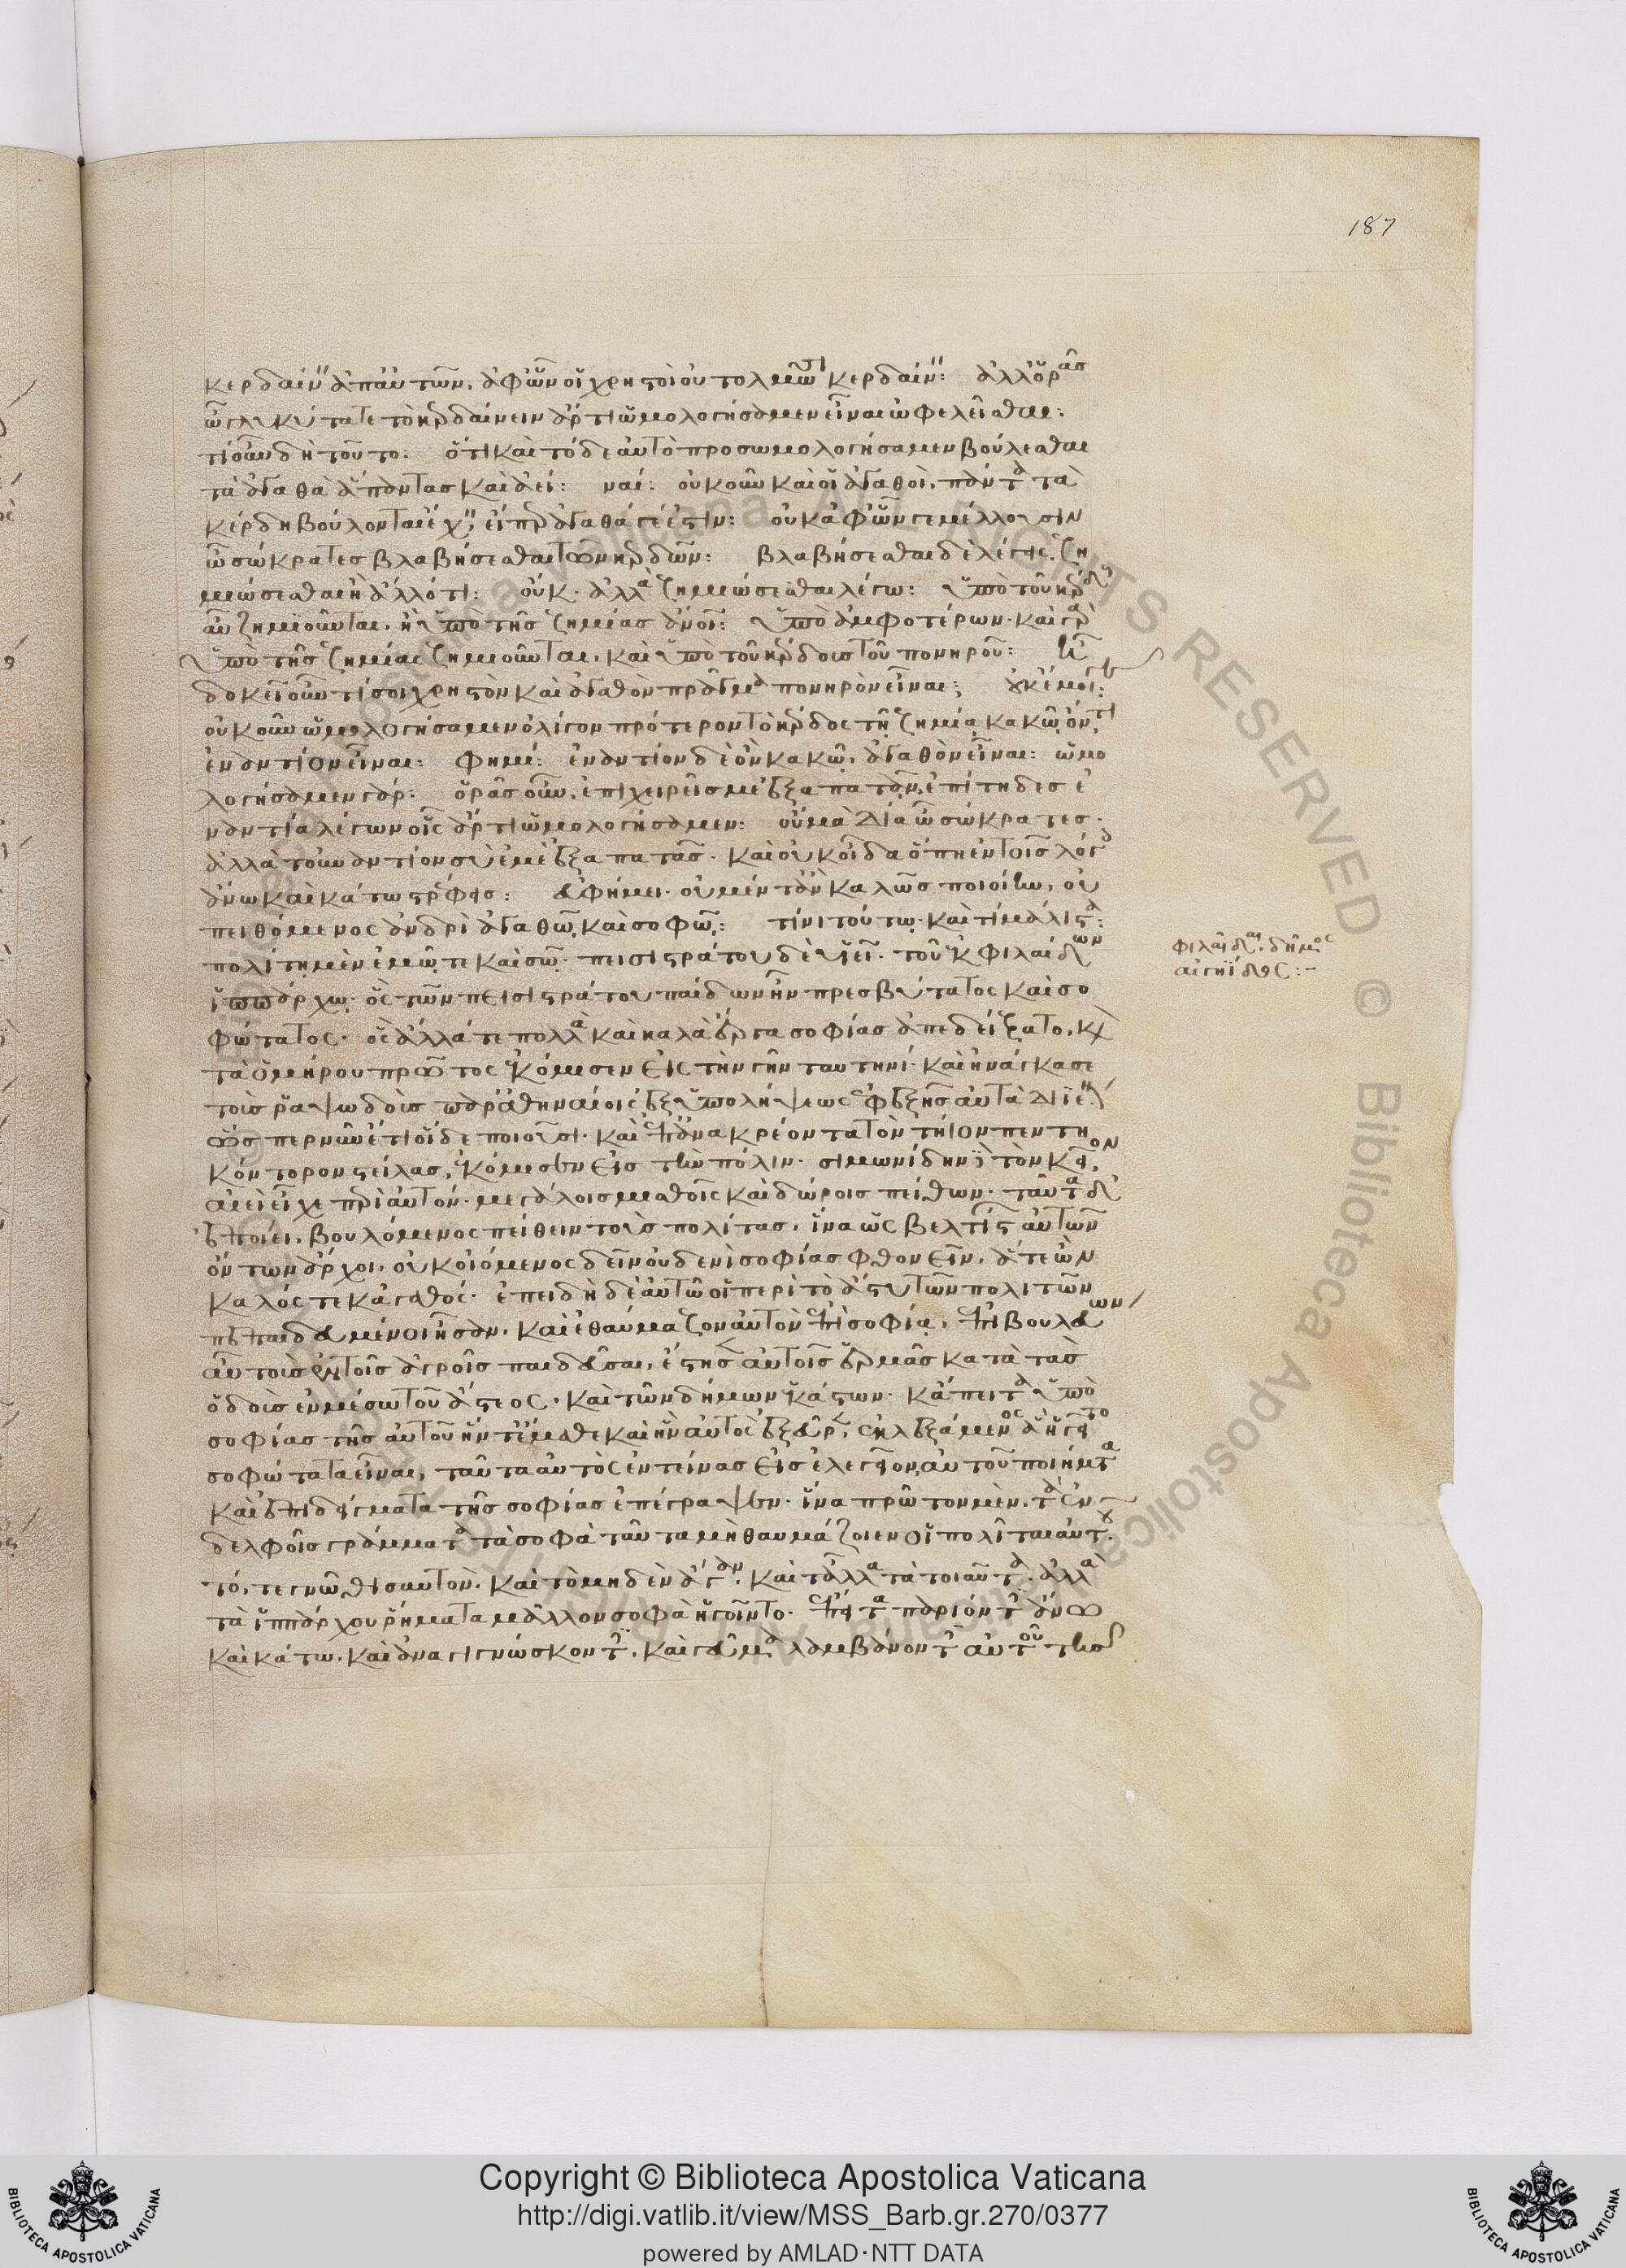 187
κερδαίνειν ἀπ' αὐτῶν, ἀφ' ὧν οἱ χρηστοὶ οὐ τολμῶσι κερδαίνειν: ἀλλ' ὁρᾷς
ὦ γλυκύτατε τὸ κερδαίνειν ἄρτι ὡμολογήσαμεν εἶναι ὠφελεῖσθαι:
τί οὖν δὴ τοῦτο: ὅτι καὶ τόδε αὐτὸ προσωμολογήσαμεν βούλεσθαι
τὰ ἀγαθὰ ἅπαντας καὶ ἀεί: ναί: οὐκοῦν καὶ οἱ ἀγαθοὶ, πάντα τὰ
κέρδη βούλονται ἔχειν, εἴπερ ἀγαθά γέ ἐστιν: οὐκ ἀφ' ὧν γε μέλλουσιν
ὦ σώκρατες βλαβήσεσθαι τῶν κερδῶν: βλαβήσεσθαι δὲ λέγεις ζη
μιώσεσθαι ἢ ἄλλό τι: οὔκ· ἀλλὰ ζημιώσεσθαι λέγω: ὑπὸ τοῦ κέρδους
οὖν ζημιοῦνται, ἢ ὑπὸ τῆς ζημίας ἄνοι: ὑπὸ ἀμφοτέρων· καὶ γὰρ
ὑπὸ τῆς ζημίας ζημιοῦνται, καὶ ὑπὸ τοῦ κέρδους τοῦ πονηροῦ: ἦ
δοκεῖ οὖν τί σοι χρηστὸν καὶ ἀγαθὸν πρᾶγμα πονηρὸν εἶναι; οὐκ ἔμοιγε:
οὐκοῦν ὡμολογήσαμεν ὀλίγον πρότερον τὸ κέρδος τῇ ζημίᾳ κακῷ ὄντι
ἐναντίον εἶναι: φημί: ἐναντίον δὲ ὂν κακῷ, ἀγαθὸν εἶναι: ὡμο
λογήσαμεν γάρ: ὁρᾷς οὖν, ἐπιχειρεῖς με ἐξαπατᾶν, ἐπίτηδες ἐ
ναντία λέγων οἷς ἄρτι ὡμολογήσαμεν: οὐ μὰ Δία ὦ σώκρατες·
ἀλλὰ τοὐναντίον σὺ ἐμὲ ἐξαπατᾷς· καὶ οὐκ οἶδα ὅπῃ ἐν τοῖς λόγοις
ἄνω καὶ κάτω στρέφεις: εὐφήμει· οὐ μέν τἂν καλῶς ποιοίην, οὐ
πειθόμενος ἀνδρὶ ἀγαθῷ καὶ σοφῷ: τίνι τούτῳ· καὶ τί μάλιστα:
πολίτῃ μὲν ἐμῷ τε καὶ σῷ· πεισιστράτου δὲ υἱεῖ· τοῦ ἐκ φιλαιδῶν
ἱππάρχῳ· ὃς τῶν πεισιστράτου παίδων ἦν πρεσβύτατος καὶ σο
φώτατος· ὃς ἄλλά τε πολλὰ καὶ καλὰ ἔργα σοφίας ἀπεδείξατο, καὶ
τὰ ὁμήρου πρῶτος ἐκόμισεν εἰς τὴν γῆν ταυτηνί· καὶ ἠνάγκασε
τοὺς ῥαψωδοὺς παναθηναίοις ἐξ ὑπολήψεως ἐφεξῆς αὐτὰ διϊέναι
ὥσπερ νῦν ἔτι οἵδε ποιοῦσι· καὶ ἐπ' ἀνακρέοντα τὸν τήιον πεντη
κόντορον στείλας, ἐκόμισεν εἰς τὴν πόλιν· σιμωνίδην δὲ τὸν κεῖον
ἀεὶ εἶχε περὶ αὐτόν· μεγάλοις μισθοῖς καὶ δώροις πείθων· ταῦτα δ'
ἐποίει, βουλόμενος πείθειν τοὺς πολίτας, ἵνα ὡς βελτίστων αὐτῶν
ὄντων ἄρχοι, οὐκ οἰόμενος δεῖν οὐδενὶ σοφίας φθονεῖν, ἅτε ὢν
καλός τε κἀγαθός· ἐπειδὴ δὲ αὐτῶ οἱ περὶ τὸ ἄστυ τῶν πολιτῶν
πεπαιδευμένοι ἦσαν, καὶ ἐθαύμαζον αὐτὸν ἐπὶ σοφίᾳ, ἐπιβουλεύων
αὖ τοὺς ἐν τοῖς ἀγροῖς παιδεῦσαι, ἔστησεν αὐτοῖς ἑρμᾶς κατὰ τὰς
ὁδοὺς ἐν μέσω τοῦ ἄστεος· καὶ τῶν δήμων ἑκάστων· κἄπειτα ὑπὸ
σοφίας τῆς αὐτοῦ ἥν τ' ἔμαθε καὶ ἣν αὐτὸς ἐξεῦρεν, ἐκλεξάμενος ἃ ἡγεῖτο
σοφώτατα εἶναι, ταῦτα αὐτὸς ἐντείνας εἰς ἐλεγεῖον, αὐτοῦ ποιήματα
καὶ ἐπιδείγματα τῆς σοφίας ἐπέγραψεν· ἵνα πρῶτον μὲν, τὰ ἐν
δελφοῖς γράμματα τὰ σοφὰ ταῦτα μὴ θαυμάζοιεν οἱ πολῖται αὐτοῦ·
τό, τε γνῶθι σαυτὸν, καὶ τὸ μηδὲν ἄγαν, καὶ τἄλλα τὰ τοιαῦτα, ἀλλὰ
τὰ ἱππάρχου ῥήματα μᾶλλον σοφὰ ἡγοῖντο· ἔπειτα παριόντες ἄνω
καὶ κάτω, καὶ ἀναγιγνώσκοντες, καὶ γεῦμα λαμβάνοντες αὐτοῦ τῆς
φιλαΐδαι, δῆμος
αἰγηΐδος:-
Copyright © Biblioteca Apostolica Vaticana
http://digi.vatlib.it/view/MSS_Barb.gr.270/0377
powered by AMLAD·NTT DATA